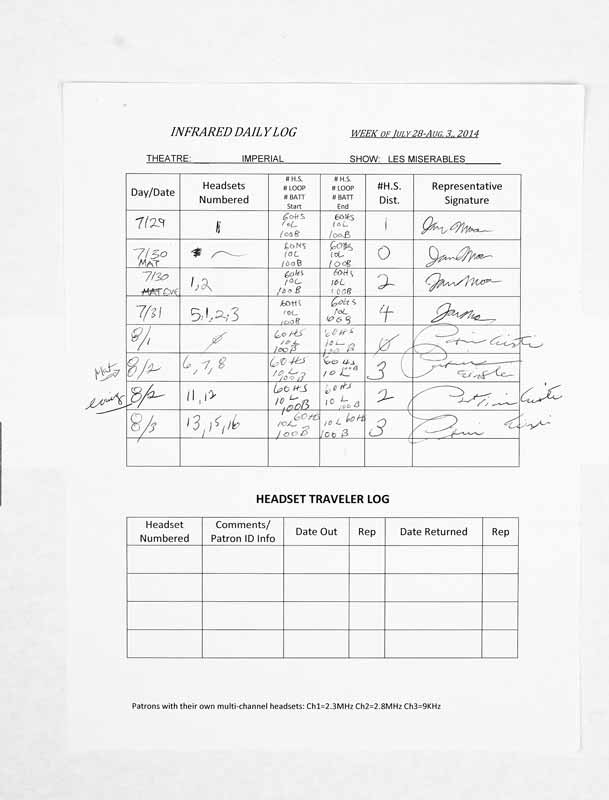 INFRARED DAILY LOG WEEK OF JULY 28-AUG. 3,, 2014
THEATRE: IMPERIAL SHOW: LES MISERABLES
Day/Date Headsets Numbered # H.S. # LOOP # BATT Start # H.S. # LOOP # BATT End #H.S. Dist. Representative Signature
7/29 60HS 10L 100B 60HS 10L 100B 1
7/30 MAT 60HS 10L 100B 60HS 10L 100B 0
7/30 EVE 1,2 60HS 10L 100B 60HS 10L 100B 2
7/31 5,1,2,3 60HS 10L 100B 60HS 10L 4
8/1 ∅ 60HS 10L 100B 60HS 10L 100B ∅
Mat 8/2 6,7,8 60HS 10L 100B 60HS 10L 100B 3
8/2 11,12 60HS 10L 100B 60HS 10L 100B 2
8/3 13,15,16 60HS 10L 100B 10L 60HS 100B 3
HEADSET TRAVELER LOG
Headset Numbered Comments/ Patron ID Info Date Out Rep Date Returned Rep
Patrons with their own multi-channel headsets: Ch1=2.3MHz Ch2=2.8MHz Ch3=9KHz